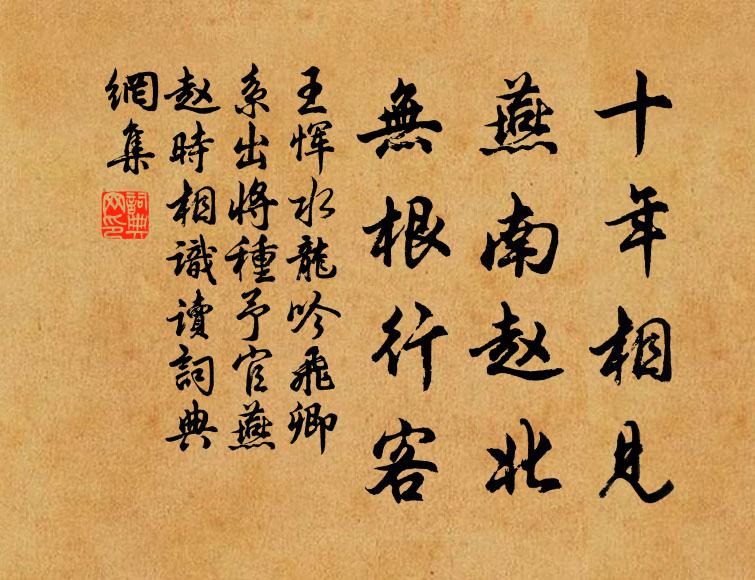 十年相見
燕南趙北
無根行客
王惲水龍吟飛卿
系出將種予官燕
趙時相識讀詞典
網集
詞典
网印